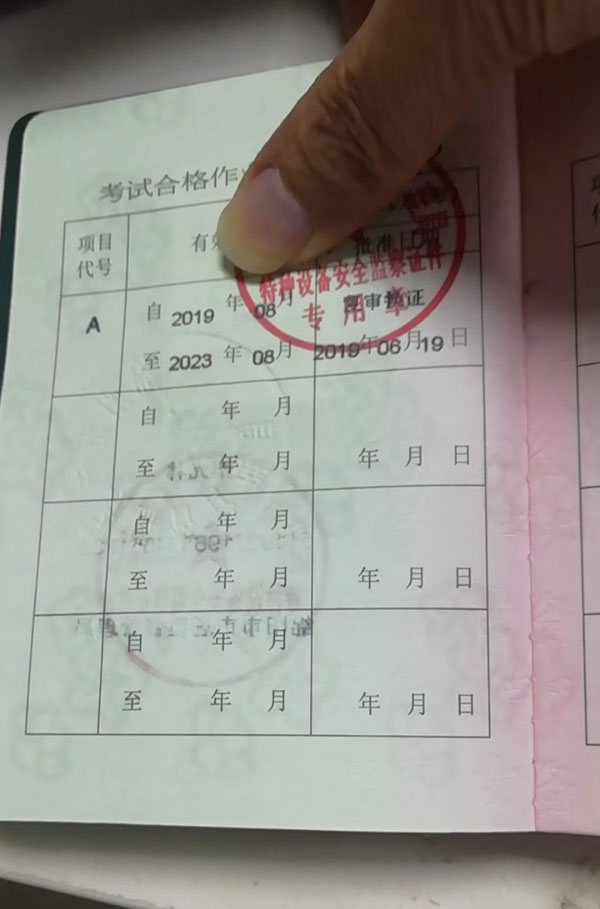 考试合格作
项目
代号
有效
批准日期
A
自 2019 年 08 月
至 2023 年 08 月
复审换证
2019 年 06 月 19 日
特种设备安全监察证件
专用章
自 年 月
至 年 月
年 月 日
自 年 月
至 年 月
年 月 日
自 年 月
至 年 月
年 月 日